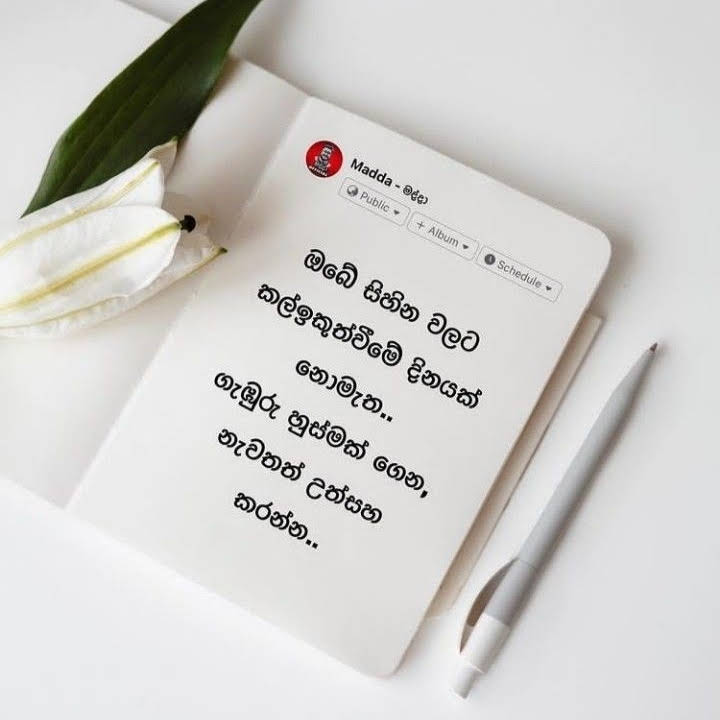 Madda - මද්දා
Public
+ Album
Schedule
ඔබේ සිහින වලට
කල්ඉකුත්වීමේ දිනයක්
නොමැත..
ගැඹුරු හුස්මක් ගෙන,
නැවතත් උත්සහ
කරන්න..